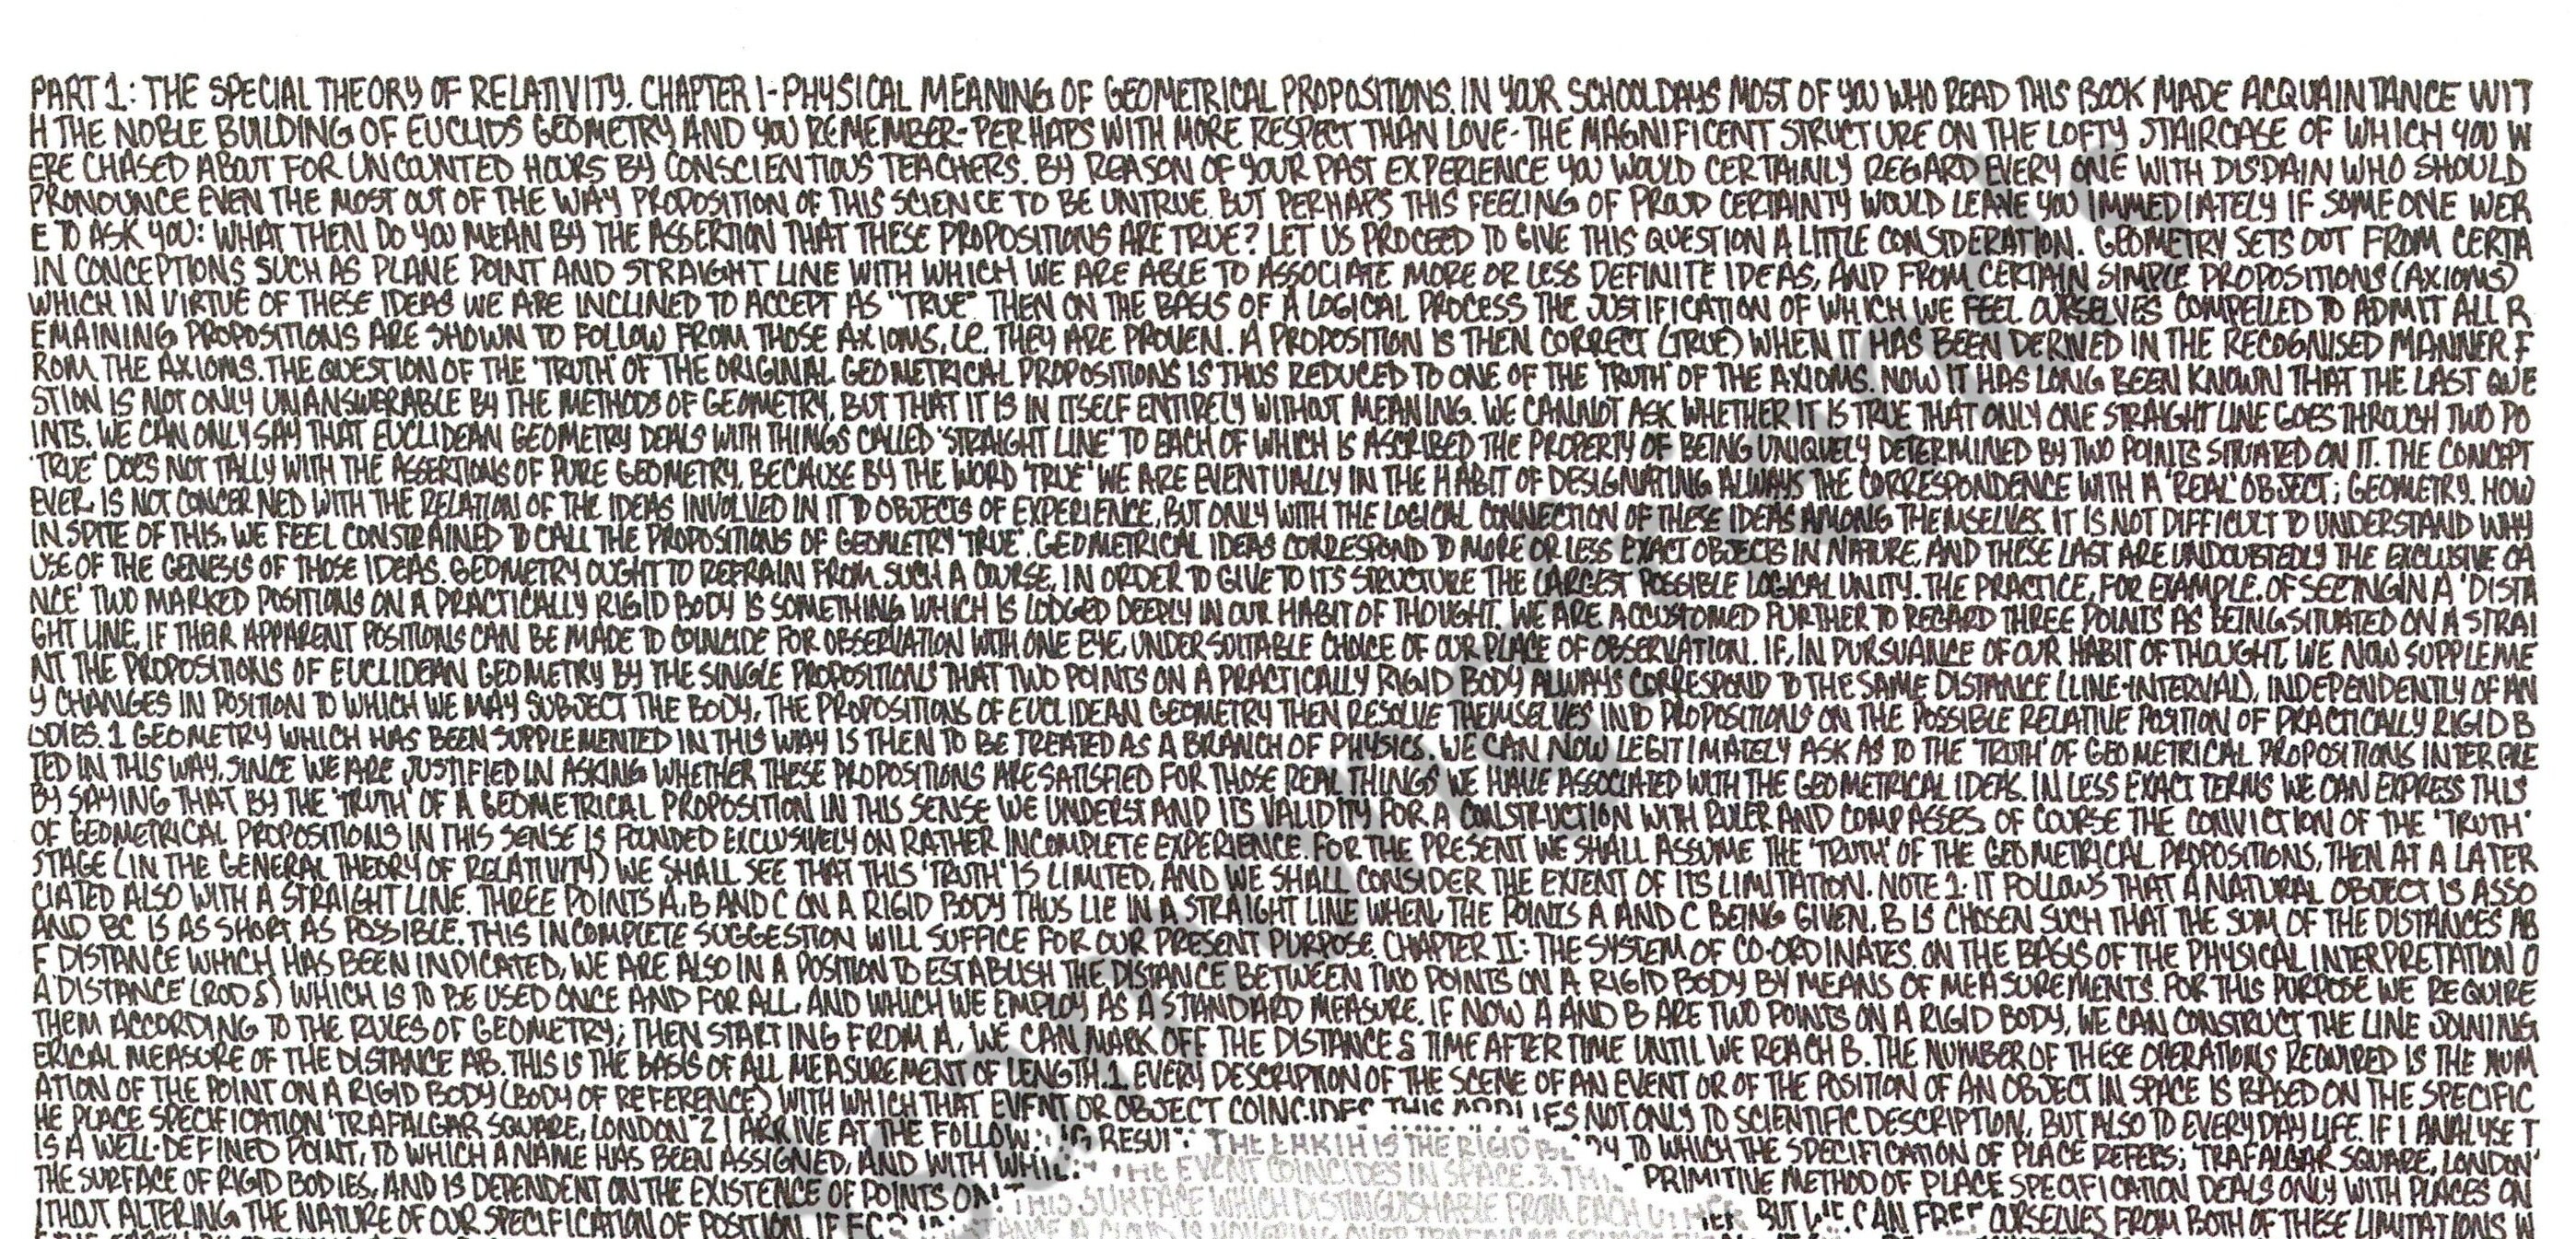 PART 1: THE SPECIAL THEORY OF RELATIVITY. CHAPTER I-PHYSICAL MEANING OF GEOMETRICAL PROPOSITIONS. IN YOUR SCHOOLDAYS MOST OF YOU WHO READ THIS BOOK MADE ACQUAINTANCE WIT
H THE NOBLE BUILDING OF EUCLIDS GEOMETRY, AND YOU REMEMBER-PERHAPS WITH MORE RESPECT THAN LOVE-THE MAGNIFICENT STRUCTURE ON THE LOFTY STAIRCASE OF WHICH YOU W
ERE CHASED ABOUT FOR UNCOUNTED HOURS BY CONSCIENTIOUS TEACHERS. BY REASON OF YOUR PAST EXPERIENCE YOU WOULD CERTAINLY REGARD EVERY ONE WITH DISDAIN WHO SHOULD
PRONOUNCE EVEN THE MOST OUT OF THE WAY PROPOSITION OF THIS SCIENCE TO BE UNTRUE. BUT PERHAPS THIS FEELING OF PROUD CERTAINTY WOULD LEAVE YOU IMMEDIATELY IF SOMEONE WER
E TO ASK YOU: WHAT THEN DO YOU MEAN BY THE ASSERTION THAT THESE PROPOSITIONS ARE TRUE? LET US PROCEED TO GIVE THIS QUESTION A LITTLE CONSIDERATION. GEOMETRY SETS OUT FROM CERTA
IN CONCEPTIONS SUCH AS PLANE POINT AND STRAIGHT LINE WITH WHICH WE ARE ABLE TO ASSOCIATE MORE OR LESS DEFINITE IDEAS, AND FROM CERTAIN SIMPLE PROPOSITIONS (AXIOMS)
WHICH IN VIRTUE OF THESE IDEAS WE ARE INCLINED TO ACCEPT AS "TRUE" THEN ON THE BASIS OF A LOGICAL PROCESS THE JUSTIFICATION OF WHICH WE FEEL OURSELVES COMPELLED TO ADMIT ALL R
EMAINING PROPOSITIONS ARE SHOWN TO FOLLOW FROM THOSE AXIOMS, I.E. THEY ARE PROVEN. A PROPOSITION IS THEN CORRECT (TRUE) WHEN IT HAS BEEN DERIVED IN THE RECOGNISED MANNER F
ROM THE AXIOMS. THE QUESTION OF THE 'TRUTH' OF THE ORIGINAL GEOMETRICAL PROPOSITIONS IS THUS REDUCED TO ONE OF THE 'TRUTH' OF THE AXIOMS. NOW IT HAS LONG BEEN KNOWN THAT THE LAST QUE
STION IS NOT ONLY UNANSWERABLE BY THE METHODS OF GEOMETRY, BUT THAT IT IS IN ITSELF ENTIRELY WITHOUT MEANING. WE CANNOT ASK WHETHER IT IS TRUE THAT ONLY ONE STRAIGHT LINE GOES THROUGH TWO PO
INTS. WE CAN ONLY SAY THAT EUCLIDEAN GEOMETRY DEALS WITH THINGS CALLED 'STRAIGHT LINE' TO EACH OF WHICH IS ASCRIBED THE PROPERTY OF BEING UNIQUELY DETERMINED BY TWO POINTS SITUATED ON IT. THE CONCEPT
'TRUE' DOES NOT TALLY WITH THE ASSERTIONS OF PURE GEOMETRY, BECAUSE BY THE WORD 'TRUE' WE ARE EVENTUALLY IN THE HABIT OF DESIGNATING ALWAYS THE CORRESPONDENCE WITH A 'REAL' OBJECT; GEOMETRY. HOW
EVER, IS NOT CONCERNED WITH THE RELATION OF THE IDEAS INVOLVED IN IT TO OBJECTS OF EXPERIENCE, BUT ONLY WITH THE LOGICAL CONNECTION OF THESE IDEAS AMONG THEMSELVES. IT IS NOT DIFFICULT TO UNDERSTAND WHY
IN SPITE OF THIS, WE FEEL CONSTRAINED TO CALL THE PROPOSITIONS OF GEOMETRY 'TRUE'. GEOMETRICAL IDEAS CORRESPOND TO MORE OR LESS EXACT OBJECTS IN NATURE, AND THESE LAST ARE UNDOUBTEDLY THE EXCLUSIVE CA
USE OF THE GENESIS OF THOSE IDEAS. GEOMETRY OUGHT TO REFRAIN FROM SUCH A COURSE, IN ORDER TO GIVE TO ITS STRUCTURE THE LARGEST POSSIBLE LOGICAL UNITY. THE PRACTICE, FOR EXAMPLE, OF SEEINGIN A 'DISTA
NCE' TWO MARKED POSITIONS ON A PRACTICALLY RIGID BODY IS SOMETHING WHICH IS LODGED DEEPLY IN OUR HABIT OF THOUGHT. WE ARE ACCUSTOMED FURTHER TO REGARD THREE POINTS AS BEING SITUATED ON A STRAI
GHT LINE, IF THEIR APPARENT POSITIONS CAN BE MADE TO COINCIDE FOR OBSERVATION WITH ONE EYE, UNDER SUITABLE CHOICE OF OUR PLACE OF OBSERVATION. IF, IN PURSUANCE OF OUR HABIT OF THOUGHT, WE NOW SUPPLEME
NT THE PROPOSITIONS OF EUCLIDEAN GEOMETRY BY THE SINGLE PROPOSITIONS THAT TWO POINTS ON A PRACTICALLY RIGID BODY ALWAYS CORRESPOND TO THE SAME DISTANCE (LINE-INTERVAL), INDEPENDENTLY OF AN
Y CHANGES IN POSITION TO WHICH WE MAY SUBJECT THE BODY, THE PROPOSITIONS OF EUCLIDEAN GEOMETRY THEN RESOLVE THEMSELVES INTO PROPOSITIONS ON THE POSSIBLE RELATIVE POSITION OF PRACTICALLY RIGID B
ODIES. 1 GEOMETRY WHICH HAS BEEN SUPPLEMENTED IN THIS WAY IS THEN TO BE TREATED AS A BRANCH OF PHYSICS. WE CAN NOW LEGITIMATELY ASK AS TO THE 'TRUTH' OF GEOMETRICAL PROPOSITIONS INTERPRE
TED IN THIS WAY, SINCE WE ARE JUSTIFIED IN ASKING WHETHER THESE PROPOSITIONS ARE SATISFIED FOR THOSE REAL THINGS WE HAVE ASSOCIATED WITH THE GEOMETRICAL IDEAS. IN LESS EXACT TERMS WE CAN EXPRESS THIS
BY SAYING THAT BY THE 'TRUTH' OF A GEOMETRICAL PROPOSITION IN THIS SENSE WE UNDERSTAND ITS VALIDITY FOR A CONSTRUCTION WITH RULER AND COMPASSES. OF COURSE THE CONVICTION OF THE 'TRUTH'
OF GEOMETRICAL PROPOSITIONS IN THIS SENSE IS FOUNDED EXCLUSIVELY ON RATHER INCOMPLETE EXPERIENCE. FOR THE PRESENT WE SHALL ASSUME THE 'TRUTH' OF THE GEOMETRICAL PROPOSITIONS, THEN AT A LATER
STAGE (IN THE GENERAL THEORY OF RELATIVITY) WE SHALL SEE THAT THIS 'TRUTH' IS LIMITED, AND WE SHALL CONSIDER THE EXTENT OF ITS LIMITATION. NOTE 1: IT FOLLOWS THAT A NATURAL OBJECT IS ASSO
CIATED ALSO WITH A STRAIGHT LINE. THREE POINTS A, B AND C ON A RIGID BODY THUS LIE IN A STRAIGHT LINE WHEN, THE POINTS A AND C BEING GIVEN, B IS CHOSEN SUCH THAT THE SUM OF THE DISTANCES AB
AND BC IS AS SHORT AS POSSIBLE. THIS INCOMPLETE SUGGESTION WILL SUFFICE FOR OUR PRESENT PURPOSE. CHAPTER II: THE SYSTEM OF CO-ORDINATES. ON THE BASIS OF THE PHYSICAL INTERPRETATION O
F DISTANCE WHICH HAS BEEN INDICATED, WE ARE ALSO IN A POSITION TO ESTABLISH THE DISTANCE BETWEEN TWO POINTS ON A RIGID BODY BY MEANS OF MEASUREMENTS. FOR THIS PURPOSE WE REQUIRE
A 'DISTANCE' (ROD S) WHICH IS TO BE USED ONCE AND FOR ALL, AND WHICH WE EMPLOY AS A STANDARD MEASURE. IF NOW A AND B ARE TWO POINTS ON A RIGID BODY, WE CAN CONSTRUCT THE LINE JOINING
THEM ACCORDING TO THE RULES OF GEOMETRY; THEN STARTING FROM A, WE CAN MARK OFF THE DISTANCE S TIME AFTER TIME UNTIL WE REACH B. THE NUMBER OF THESE OPERATIONS REQUIRED IS THE NUM
ERICAL MEASURE OF THE DISTANCE AB. THIS IS THE BASIS OF ALL MEASUREMENT OF LENGTH. 1. EVERY DESCRIPTION OF THE SCENE OF AN EVENT OR OF THE POSITION OF AN OBJECT IN SPACE IS BASED ON THE SPECIFIC
ATION OF THE POINT ON A RIGID BODY (BODY OF REFERENCE) WITH WHICH THAT EVENT OR OBJECT COINCIDES THIS APPLIES NOT ONLY TO SCIENTIFIC DESCRIPTION, BUT ALSO TO EVERYDAY LIFE. IF I ANALYSE T
HE PLACE SPECIFICATION 'TRAFALGAR SQUARE, LONDON" 2 I ARRIVE AT THE FOLLOWING RESULT: THE EARTH IS THE RIGID BODY TO WHICH THE SPECIFICATION OF PLACE REFERS; 'TRAFALGAR SQUARE, LONDON'
IS A WELL-DEFINED POINT, TO WHICH A NAME HAS BEEN ASSIGNED, AND WITH WHICH THE EVENT COINCIDES IN SPACE. 3. THIS PRIMITIVE METHOD OF PLACE SPECIFICATION DEALS ONLY WITH PLACES ON
THE SURFACE OF RIGID BODIES, AND IS DEPENDENT ON THE EXISTENCE OF POINTS ON THIS SURFACE WHICH DISTINGUISHABLE FROM EACH OTHER. BUT WE CAN FREE OURSELVES FROM BOTH OF THESE LIMITATIONS W
ITHOUT ALTERING THE NATURE OF OUR SPECIFICATION OF POSITION. IF A CLOUD IS HOVERING OVER